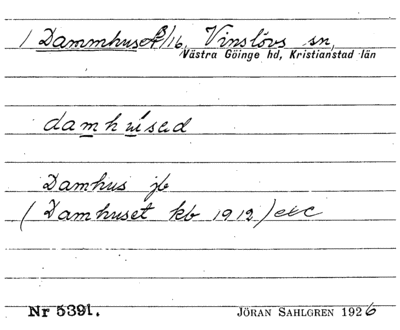 1 Dammhuset A8/16, Vinslövs sn,
Västra Göinge hd, Kristianstad län
damhúsəd
Damhus jb
(Damhuset kb 1912)
Nr 5391.
JÖRAN SAHLGREN 1926